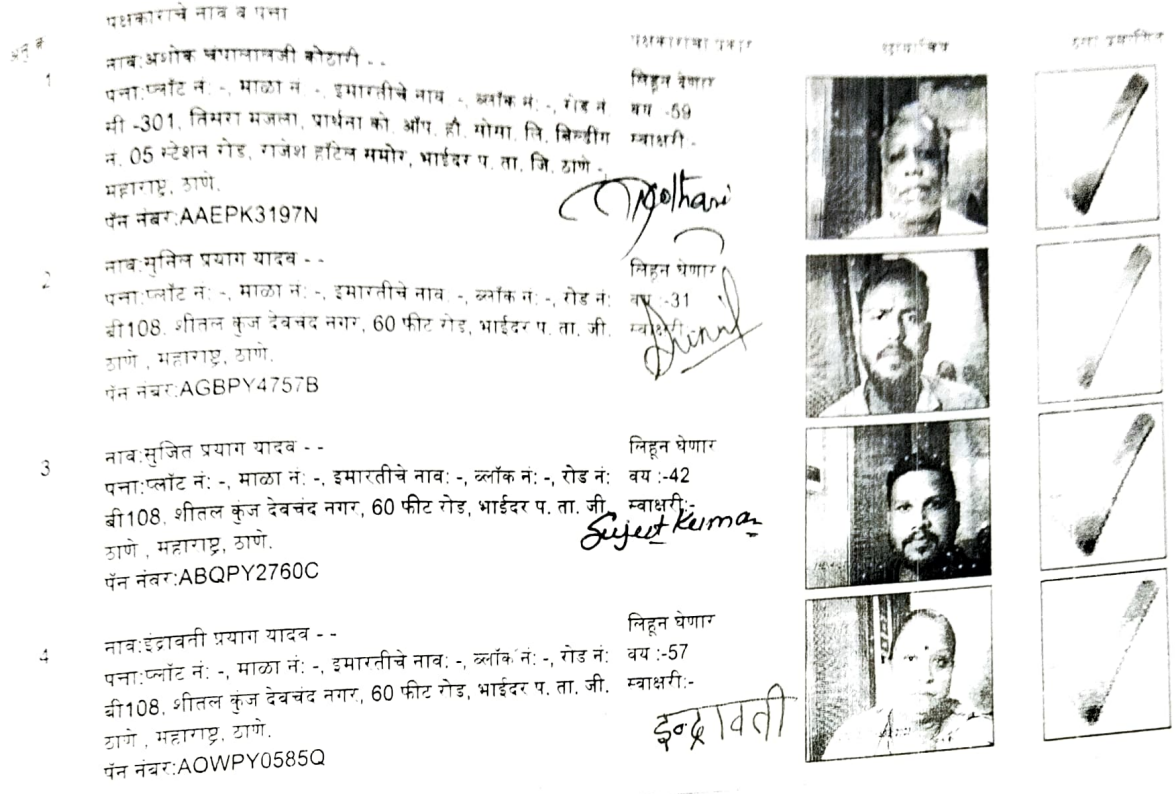 पक्षकाराचे नाव व पत्ता
पक्षकाराचा प्रकार
छायाचित्र
ठसा प्रमाणित
अनु क्र.
1
नाव:अशोक चंपालालजी कोठारी - -
पत्ता:प्लॉट नं: -, माळा नं: -, इमारतीचे नाव: -, ब्लॉक नं: -, रोड नं:
सी -301, तिसरा मजला, प्रार्थना को. ऑप. हौ. सोसा. लि. बिल्डींग
नं. 05 स्टेशन रोड, राजेश हॉटेल समोर, भाईंदर प. ता. जि. ठाणे -,
महाराष्ट्र, ठाणे.
पॅन नंबर:AAEPK3197N
लिहून देणार
वय -59
स्वाक्षरी:-
Kothari
2
नाव:सुनिल प्रयाग यादव - -
पत्ता:प्लॉट नं: -, माळा नं: -, इमारतीचे नाव: -, ब्लॉक नं: -, रोड नं:
बी108, शीतल कुंज देवचंद नगर, 60 फीट रोड, भाईंदर प. ता. जी.
ठाणे , महाराष्ट्र, ठाणे.
पॅन नंबर:AGBPY4757B
लिहून घेणार
वय :-31
स्वाक्षरी:-
Sunil
3
नाव:सुजित प्रयाग यादव - -
पत्ता:प्लॉट नं: -, माळा नं: -, इमारतीचे नाव: -, ब्लॉक नं: -, रोड नं:
बी108, शीतल कुंज देवचंद नगर, 60 फीट रोड, भाईंदर प. ता. जी.
ठाणे , महाराष्ट्र, ठाणे.
पॅन नंबर:ABQPY2760C
लिहून घेणार
वय :-42
स्वाक्षरी:-
Sujeet Kumar
4
नाव:इंद्रावती प्रयाग यादव - -
पत्ता:प्लॉट नं: -, माळा नं: -, इमारतीचे नाव: -, ब्लॉक नं: -, रोड नं:
बी108, शीतल कुंज देवचंद नगर, 60 फीट रोड, भाईंदर प. ता. जी.
ठाणे , महाराष्ट्र, ठाणे.
पॅन नंबर:AOWPY0585Q
लिहून घेणार
वय :-57
स्वाक्षरी:-
इन्द्रावती